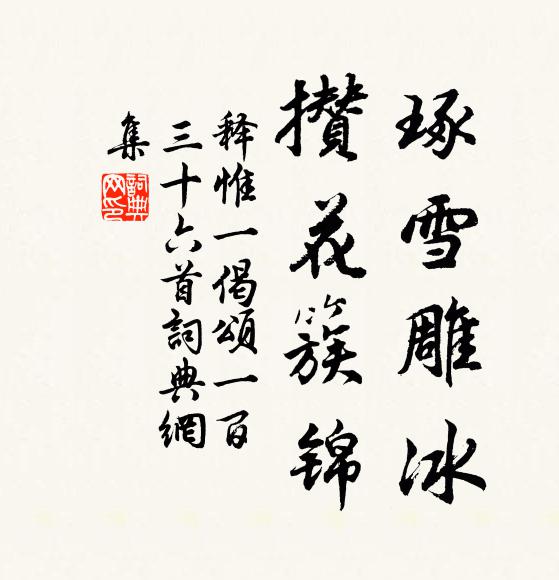 琢雪雕冰
攢花簇锦
释惟一偈頌一百
三十六首詞典網
集
詞典網印